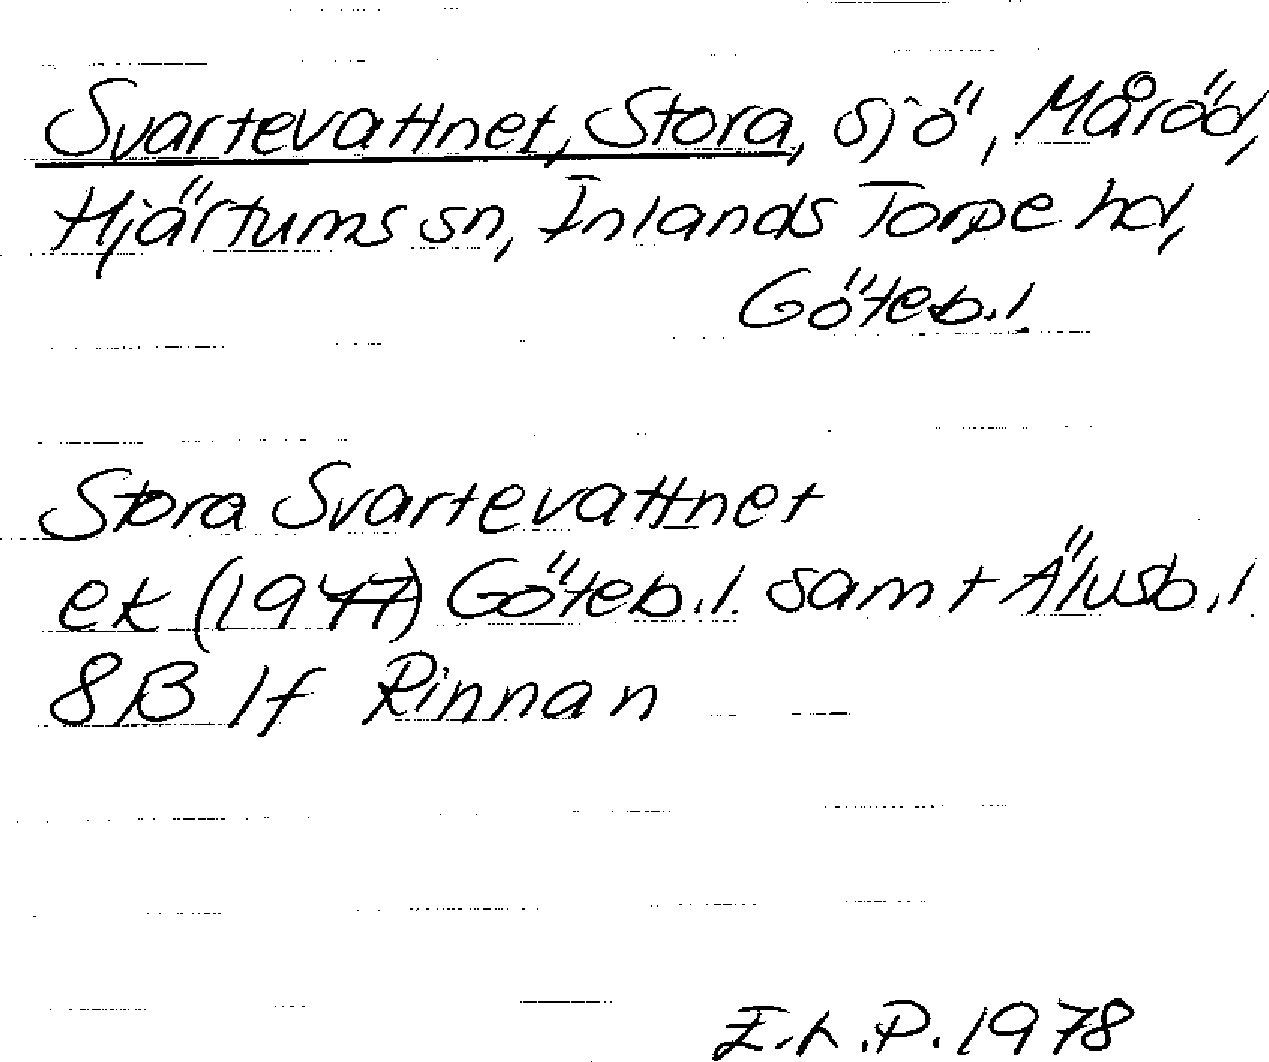 Svartevattnet, Stora, sjö, Måröd,
Hjärtums sn, Inlands Torpe hd,
Göteb.l
Stora Svartevattnet
ek (1947) Göteb.l. samt Älvsb.l.
8B 1f Rinnan
E.L.P. 1978